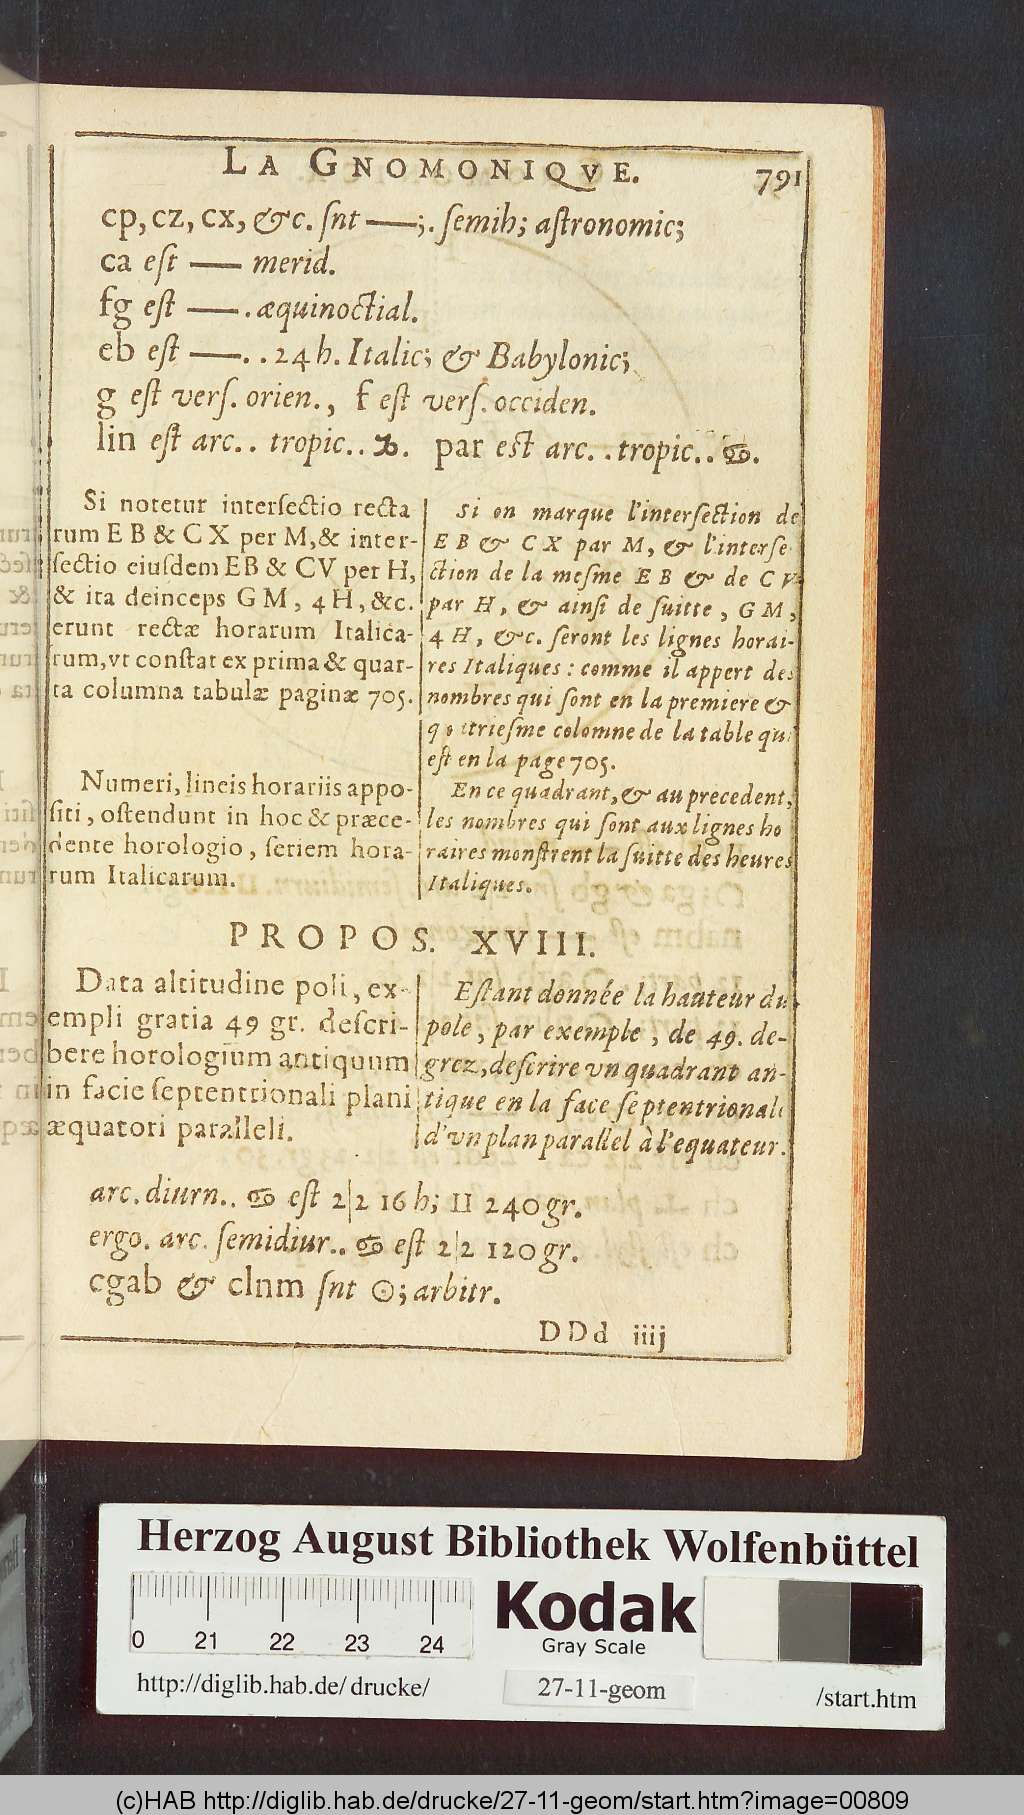 LA GNOMONIQVE. 791
cp, cz, cx, &c. ſnt —;. ſemih; aſtronomic;
ca eſt — merid.
fg eſt —. æquinoctial.
eb eſt —. . 24 h. Italic; & Babylonic;
g eſt verſ. orien., f eſt verſ. occiden.
lin eſt arc.. tropic.. ♑. par est arc. . tropic.. ♋.
Si notetur interſectio recta
rum E B & C X per M, & inter-
ſectio eiuſdem EB & CV per H,
& ita deinceps G M, 4 H, &c.
erunt rectæ horarum Italica-
rum, vt conſtat ex prima & quar-
ta columna tabulæ paginæ 705.
Numeri, lineis horariis appo-
ſiti, oſtendunt in hoc & præce-
dente horologio, ſeriem hora-
rum Italicarum.
Si on marque l'interſection de
E B & C X par M, & l'interſe
ction de la meſme E B & de C V
par H, & ainſi de ſuitte, G M,
4 H, &c. ſeront les lignes horai-
res Italiques : comme il appert des
nombres qui ſont en la premiere &
q trieſme colomne de la table qu
eſt en la page 705.
En ce quadrant, & au precedent,
les nombres qui ſont aux lignes ho
raires monſtrent la ſuitte des heures
Italiques.
PROPOS. XVIII.
Data altitudine poli, ex-
empli gratia 49 gr. deſcri-
bere horologium antiquum
in facie ſeptentrionali plani
æquatori paralleli.
Eſtant donnée la hauteur du
pole, par exemple, de 49. de-
grez, deſcrire vn quadrant an-
tique en la face ſeptentrionale
d'vn plan parallel à l'equateur.
arc. diurn.. ♋ eſt 2|2 16 h; II 240 gr.
ergo. arc. ſemidiur.. ♋ eſt 2|2 120 gr.
cgab & clnm ſnt ☉; arbitr.
DDd iiij
Herzog August Bibliothek Wolfenbüttel
0 21 22 23 24
Kodak
Gray Scale
http://diglib.hab.de/drucke/ 27-11-geom /start.htm
(c)HAB http://diglib.hab.de/drucke/27-11-geom/start.htm?image=00809